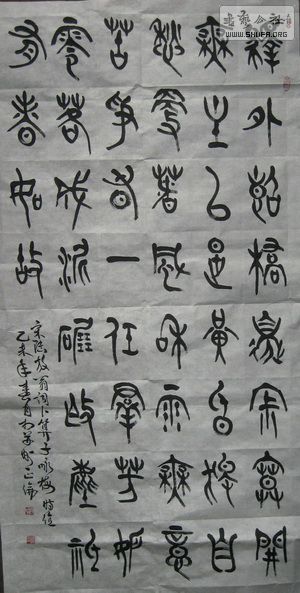 書藝公社
WWW.SHUFA.ORG
驛外斷橋邊寂寞開
無主已是黃昏獨自
愁更著風和雨無意
苦爭春一任群芳妒
零落成泥碾作塵祇
有香如故
宋陸放翁詞卜算子咏梅時值
乙未年春月